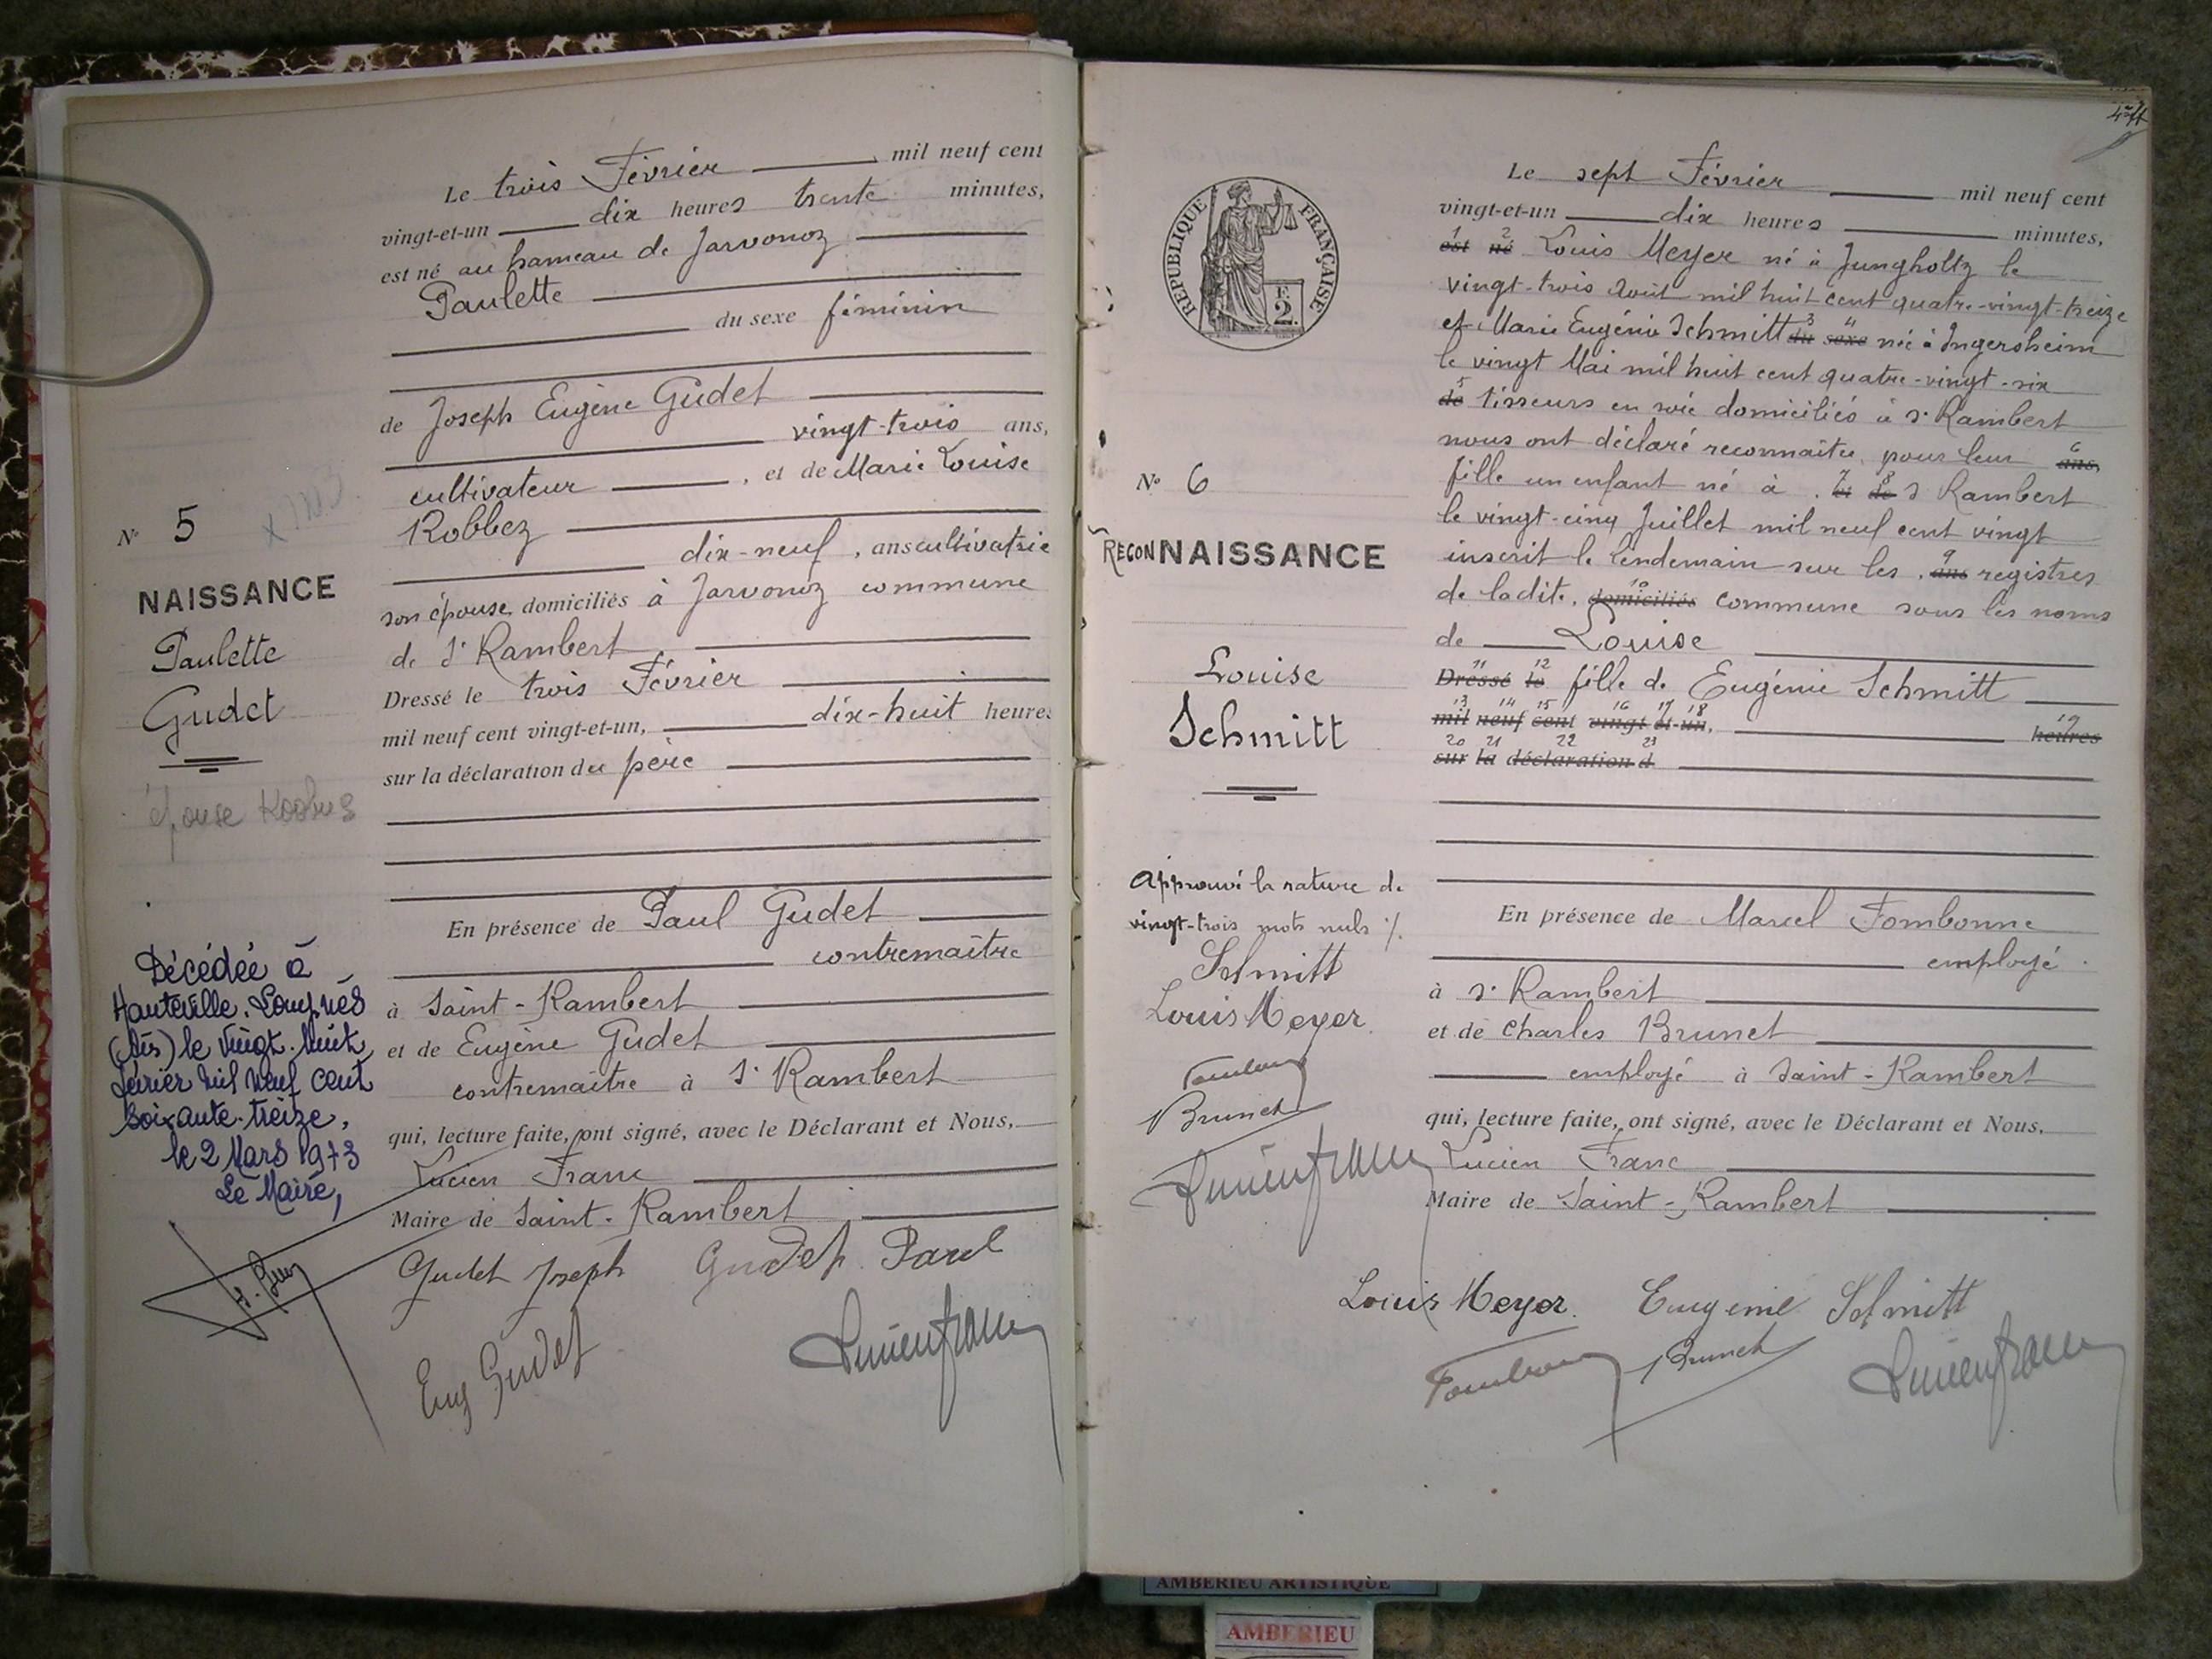 Le trois Février mil neuf cent
vingt-et-un dix heures trente minutes,
est né au hameau de Jarvonoz
Paulette
du sexe féminin
de Joseph Eugène Gudet
vingt-trois ans,
cultivateur , et de Marie Louise
Robbez
dix-neuf , ans cultivatrice
son épouse domiciliés à Jarvonoz commune
de St Rambert
Dressé le trois Février
mil neuf cent vingt-et-un, dix-huit heures
sur la déclaration du père
En présence de Paul Gudet
contremaître
à Saint-Rambert
et de Eugène Gudet
contremaître à St Rambert
qui, lecture faite, ont signé, avec le Déclarant et Nous,
Lucien Franc
Maire de Saint-Rambert
Gudet Joseph Gudet Paul
Eug Gudet
Lucien Franc
No 5
NAISSANCE
Paulette
Gudet
épouse
Décédée à
Hauteville-Lompnès
(Ain) le vingt-huit
février mil neuf cent
soixante-treize.
le 2 Mars 1973
Le Maire,
RÉPUBLIQUE FRANÇAISE
F.
2.
No 6
RECONNAISSANCE
Louise
Schmitt
Approuvé la rature de
vingt-trois mots nuls %
Schmitt
Louis Meyer
Fombonne
Brunet
Lucien Franc
Le sept Février mil neuf cent
vingt-et-un dix heures minutes,
1 2
est né Louis Meyer né à Jungholtz le
vingt-trois août mil huit cent quatre-vingt-treize
3 4
et Marie Eugénie Schmitt du sexe née à Ingersheim
le vingt Mai mil huit cent quatre-vingt-six
5
de tisseurs en soie domiciliés à St Rambert
6
nous ont déclaré reconnaître pour leur ans,
7 8
fille un enfant né à , et de St Rambert
le vingt-cinq Juillet mil neuf cent vingt
9
inscrit le lendemain sur les , ans registres
10
de ladite, domiciliés commune sous les noms
de Louise
11 12
Dressé le fille de Eugénie Schmitt
13 14 15 16 17 18 19
mil neuf cent vingt-et-un, heures
20 21 22 23
sur la déclaration d
En présence de Marcel Fombonne
employé
à St Rambert
et de Charles Brunet
employé à Saint-Rambert
qui, lecture faite, ont signé, avec le Déclarant et Nous,
Lucien Franc
Maire de Saint-Rambert
Louis Meyer. Eugénie Schmitt
Fombonne Brunet Lucien Franc
AMBERIEU ARTISTIQUE
AMBERIEU